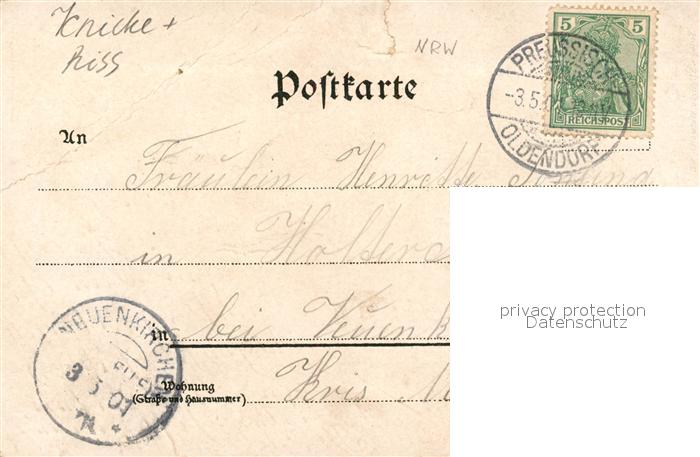 Knicke +
Riss
NRW
5 5
REICHSPOST
PREUSSISCH
-3.5.01
OLDENDORF
Postkarte
An
Fräulein Henriette
in Holter
in bei Neuenk
Kris
Wohnung
(Straße und Hausnummer)
NEUENKIRCHEN
3 5 01
privacy protection
Datenschutz